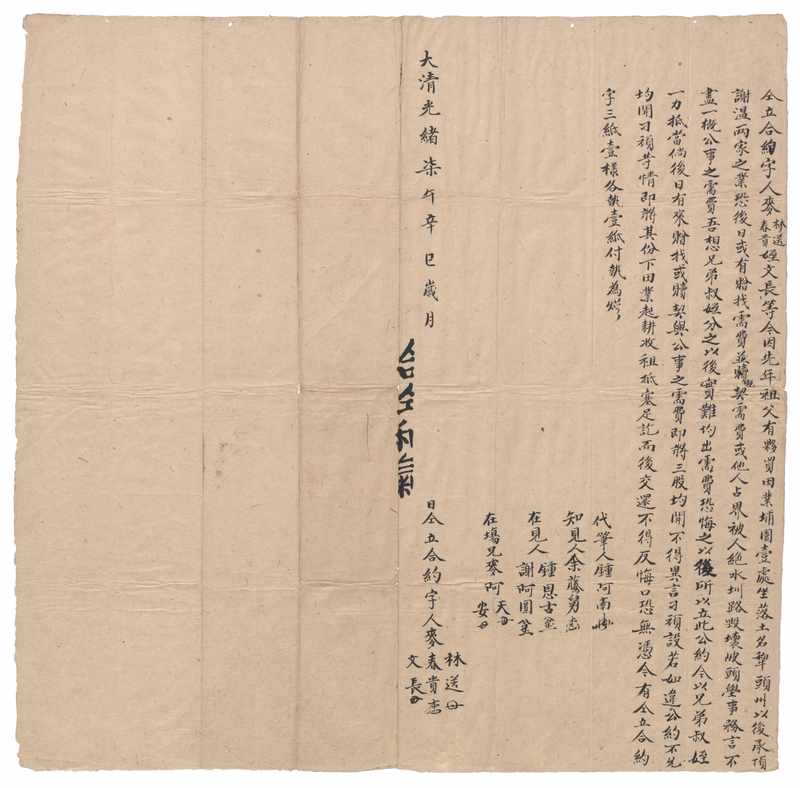 仝立合約字人麥林送春貴姪文長等今因先年祖父有夥買田業埔園壹處坐落土名犂頭州以後承頂
謝溫兩家之業恐後日或有贈找需費並贖契需費或他人占界被人絕水圳路毀壞陂頭壆事務言不
盡一概公事之需費吾想兄弟叔姪分之以後實難均出需費恐悔之以後所以立此公約今以兄弟叔姪
一力抵當倘後日有來贈找或贖契與公事之需費即將三股均開不得異言刁頑設若如違公約不允
均開刁頑等情即將其份下田業起耕收租抵塞足訖而後交還不得反悔口恐無憑今有仝立合約
字三紙壹樣各執壹紙付執為炤
代筆人鍾阿南
知見人余藤舅
在見人鍾恩古
謝阿園
在場兄麥阿天
安
大清光緒柒年辛巳歲月
合仝和氣
日仝立合約字人麥春貴
林送
文長